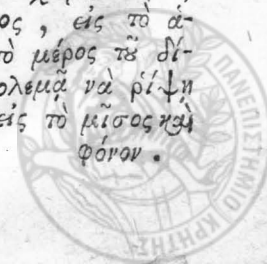 ος, εἰς τὸ ἀ-
τὸ μέρος τοῦ δί-
ολεμᾶ νὰ ῥίψῃ
εἰς τὸ μῖσος καὶ
φόνον.
ΠΑΝΕΠΙΣΤΗΜΙΟ ΚΡΗΤΗΣ